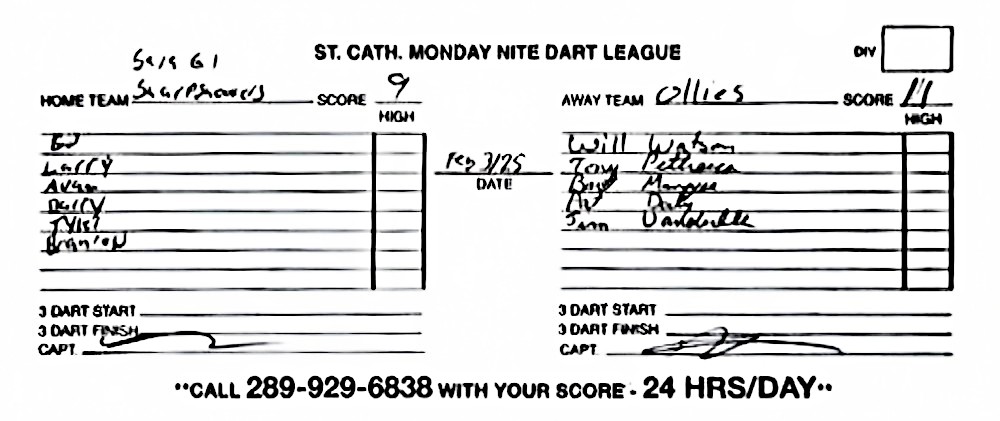 ST. CATH. MONDAY NITE DART LEAGUE
DIV
HOME TEAM SCORE 9
HIGH
AWAY TEAM Ollies SCORE 11
HIGH
EJ
Larry
Adam
Darry
Tyler
Brandon
Feb 3/25
DATE
Will Watson
Tony
Art
Jim
3 DART START
3 DART FINISH
CAPT.
3 DART START
3 DART FINISH
CAPT.
**CALL 289-929-6838 WITH YOUR SCORE - 24 HRS/DAY**